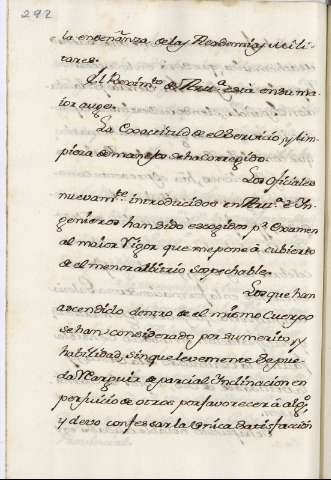 292
la enseñanza de las Academias Mili-
tares.
El Regim.to de Art.a está en su ma
ior auge.
La Exactitud de el Servicio, y lim
pieza de manejo se ha corregido.
Los Oficiales
nuevam.te introducidos en Art.a e In
genieros han sido escogidos p.r Examen
al maior rigor que me pone á cubierto
de el menor albitrio sospechable.
Los que han
ascendido dentro de el mismo Cuerpo
se han considerado por su merito, y
habilidad, sin que levemente se pue
da Narguir de parcial Inclinacion en
perjuicio de otros por favorecer á alg.o
y devo confessar la unica satisfacción